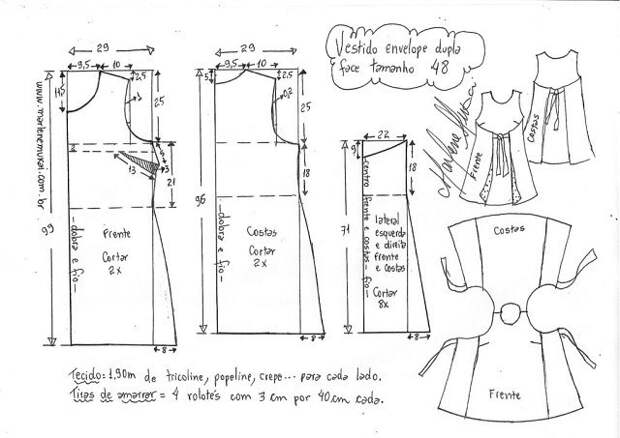 Vestido envelope dupla
face tamanho 48
29
9,5
10
2,5
3
25
2
13
3
21
99
www.marlenemukai.com.br
dobra e fio
Frente
Cortar
2x
8
29
9,5
10
5
2,5
25
18
96
dobra e fio
Costas
Cortar
2x
8
22
18
71
centro
frente e costas - fio
lateral
esquerda
e direita
frente
e costas
Cortar
8x
8
Marlene Mukai
Frente
Costas
Costas
Frente
Tecido: 1,90m de tricoline, popeline, crepe... para cada lado.
Tiras de amarrar = 4 rolotês com 3 cm por 40 cm cada.